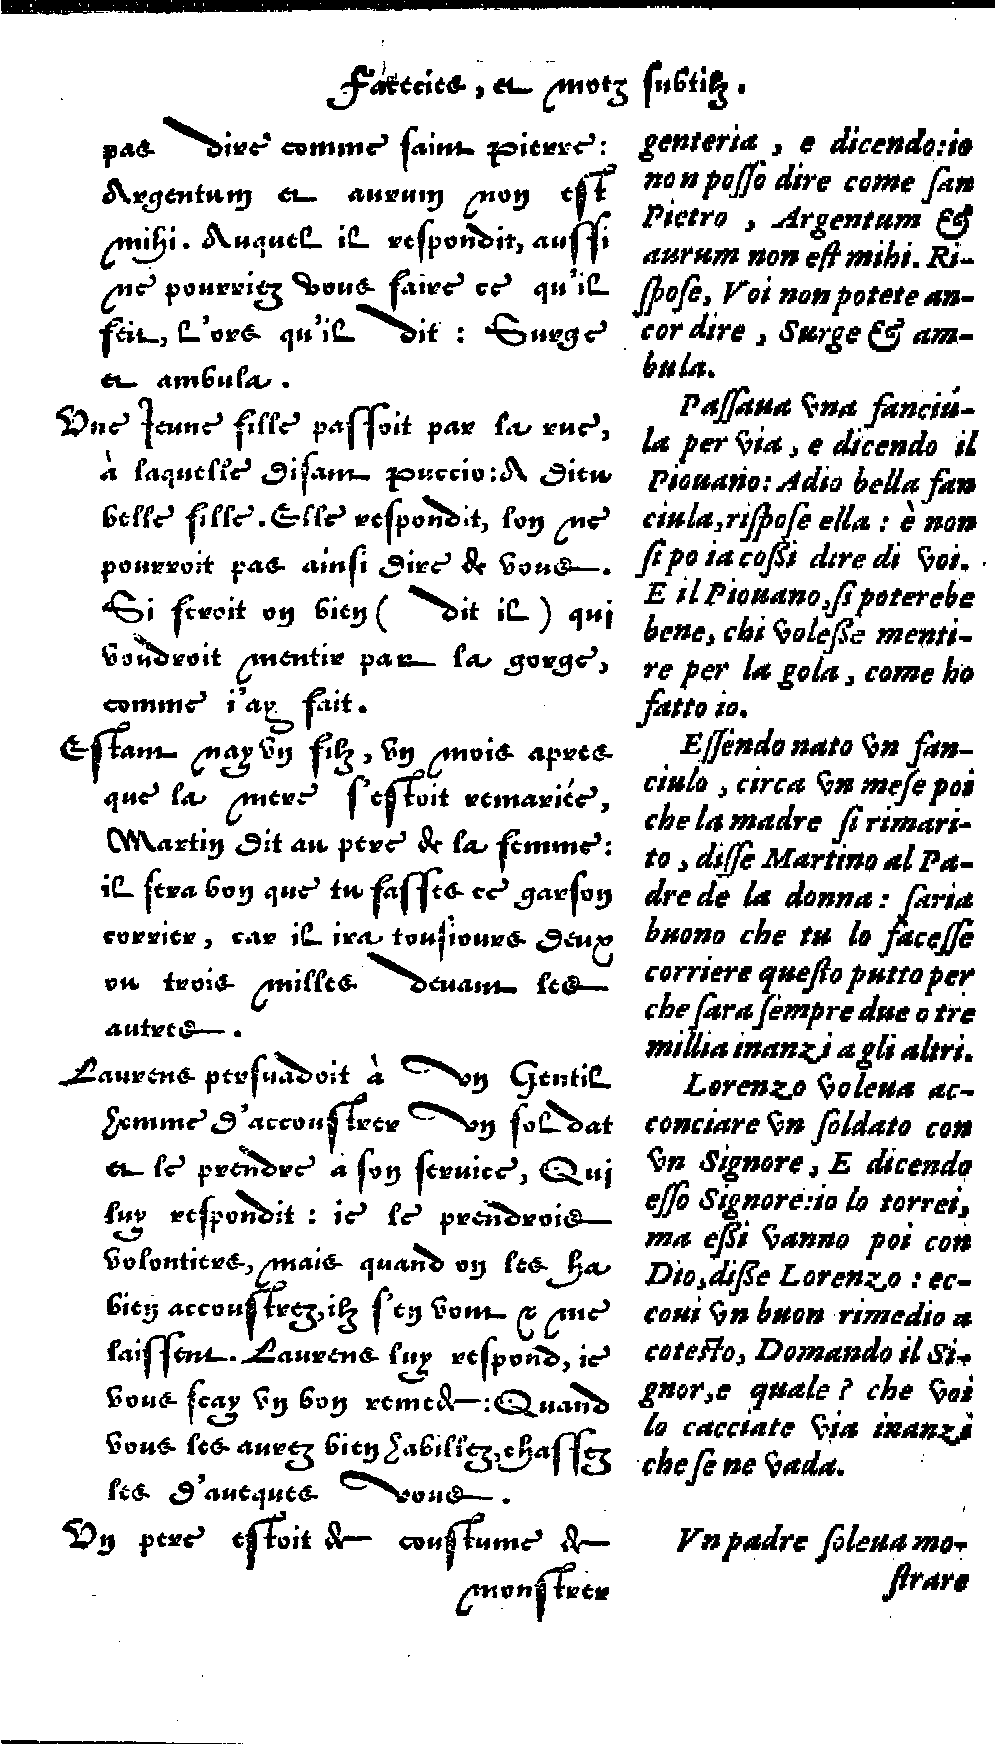 Facecies, et motz subtilz.
pas dire comme saint Pierre:
Argentum et aurum non est
mihi. Auquel il respondit, aussi
ne pourriez vous faire ce qu'il
feit, l'ors qu'il dit : Surge
et ambula.
Vne Jeune fille passoit par la rue,
à laquelle disant Puccio: A Dieu
belle fille. Elle respondit, lon ne
pourroit pas ainsi dire de vous.
Si feroit on bien ( dit il ) qui
voudroit mentir par la gorge,
comme i'ay fait.
Estant nay vn filz, vn mois apres
que la mere s'estoit remariée,
Martin dit au pere de la femme:
il sera bon que tu fasses ce garson
corrier, car il ira tousiours deux
ou trois milles deuant les
autres.
Laurens persuadoit à vn Gentil
homme d'accoustrer vn soldat
et le prendre a son seruice, Qui
luy respondit : ie le prendrois
volontiers, mais quand on les ha
bien accoustrez, ilz s'en vont & me
laissent. Laurens luy respond, ie
vous scay vn bon remede: Quand
vous les aurez bien habillez, chassez
les d'auecques vous.
Vn pere estoit de coustume de
monstrer
genteria, e dicendo:io
non posso dire come san
Pietro, Argentum &
aurum non est mihi. Ri-
spose, Voi non potete an-
cor dire, Surge & am-
bula.
Passaua vna fanciú-
la per via, e dicendo il
Piouano: Adio bella fan
ciula, rispose ella : è non
si po ia cossi dire di voi.
E il Piouano, si poterebe
bene, chi volesse menti-
re per la gola, come ho
fatto io.
Essendo nato vn fan-
ciulo, circa vn mese poi
che la madre si rimari-
to, disse Martino al Pa-
dre de la donna: saria
buono che tu lo facesse
corriere questo putto per
che sara sempre due o tre
millia inanzi agli altri.
Lorenzo voleua ac-
conciare vn soldato con
vn Signore, E dicendo
esso Signore:io lo torrei,
ma essi vanno poi con
Dio, disse Lorenzo : ec-
coui vn buon rimedio a
cotesto, Domando il Si-
gnor, e quale? che voi
lo cacciate via inanzi
che se ne vada.
Vn padre soleua mo-
strare